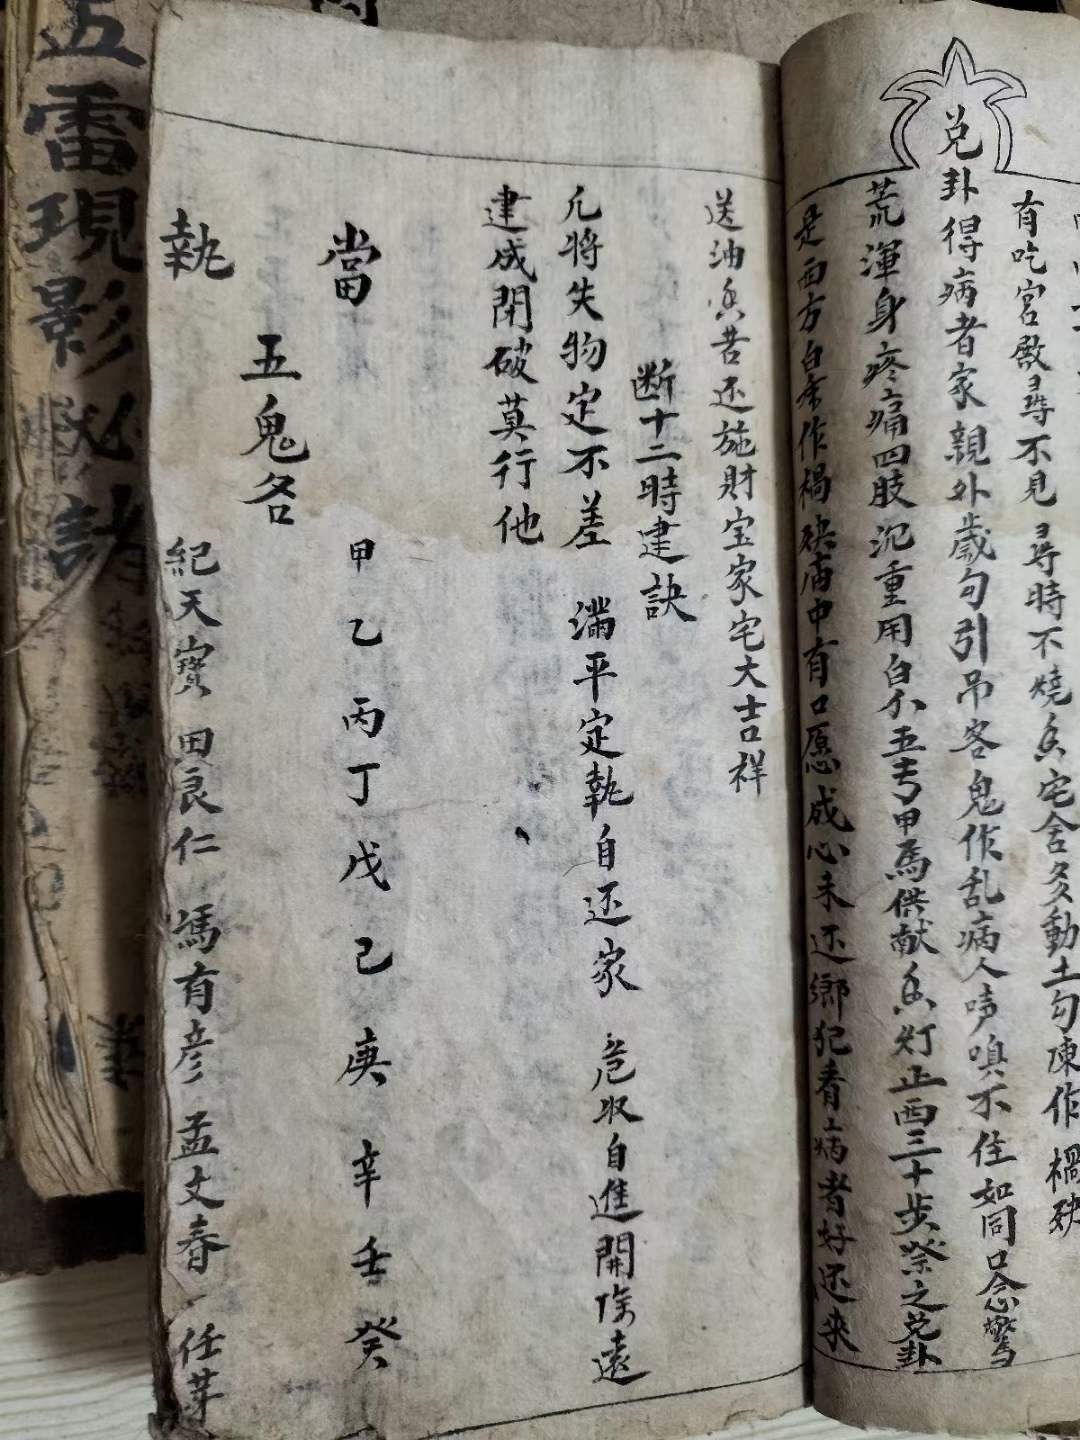 有吃宮啟尋不見尋時不燒香宅舍多動土勾陳作禍殃
兑卦得病者家親外歲勾引吊客鬼作乱病人哼嗅不住如同口念驚
荒渾身疼痛四肢沉重用白小五弓甲馬供献香灯正西三十步祭之兑卦
是西方白帝作禍殃庙中有口愿成心未还鄉犯看病者好还来
送油香苦还施財宝家宅大吉祥
断十二時建訣
凢將失物定不差 滿平定執自还家 危収自進開除遠
建成閉破莫行他
當 甲乙丙丁戊己庚辛壬癸
五鬼名
執 紀天寶 田良仁 馮有彦 孟文春 任芽
五雷現影